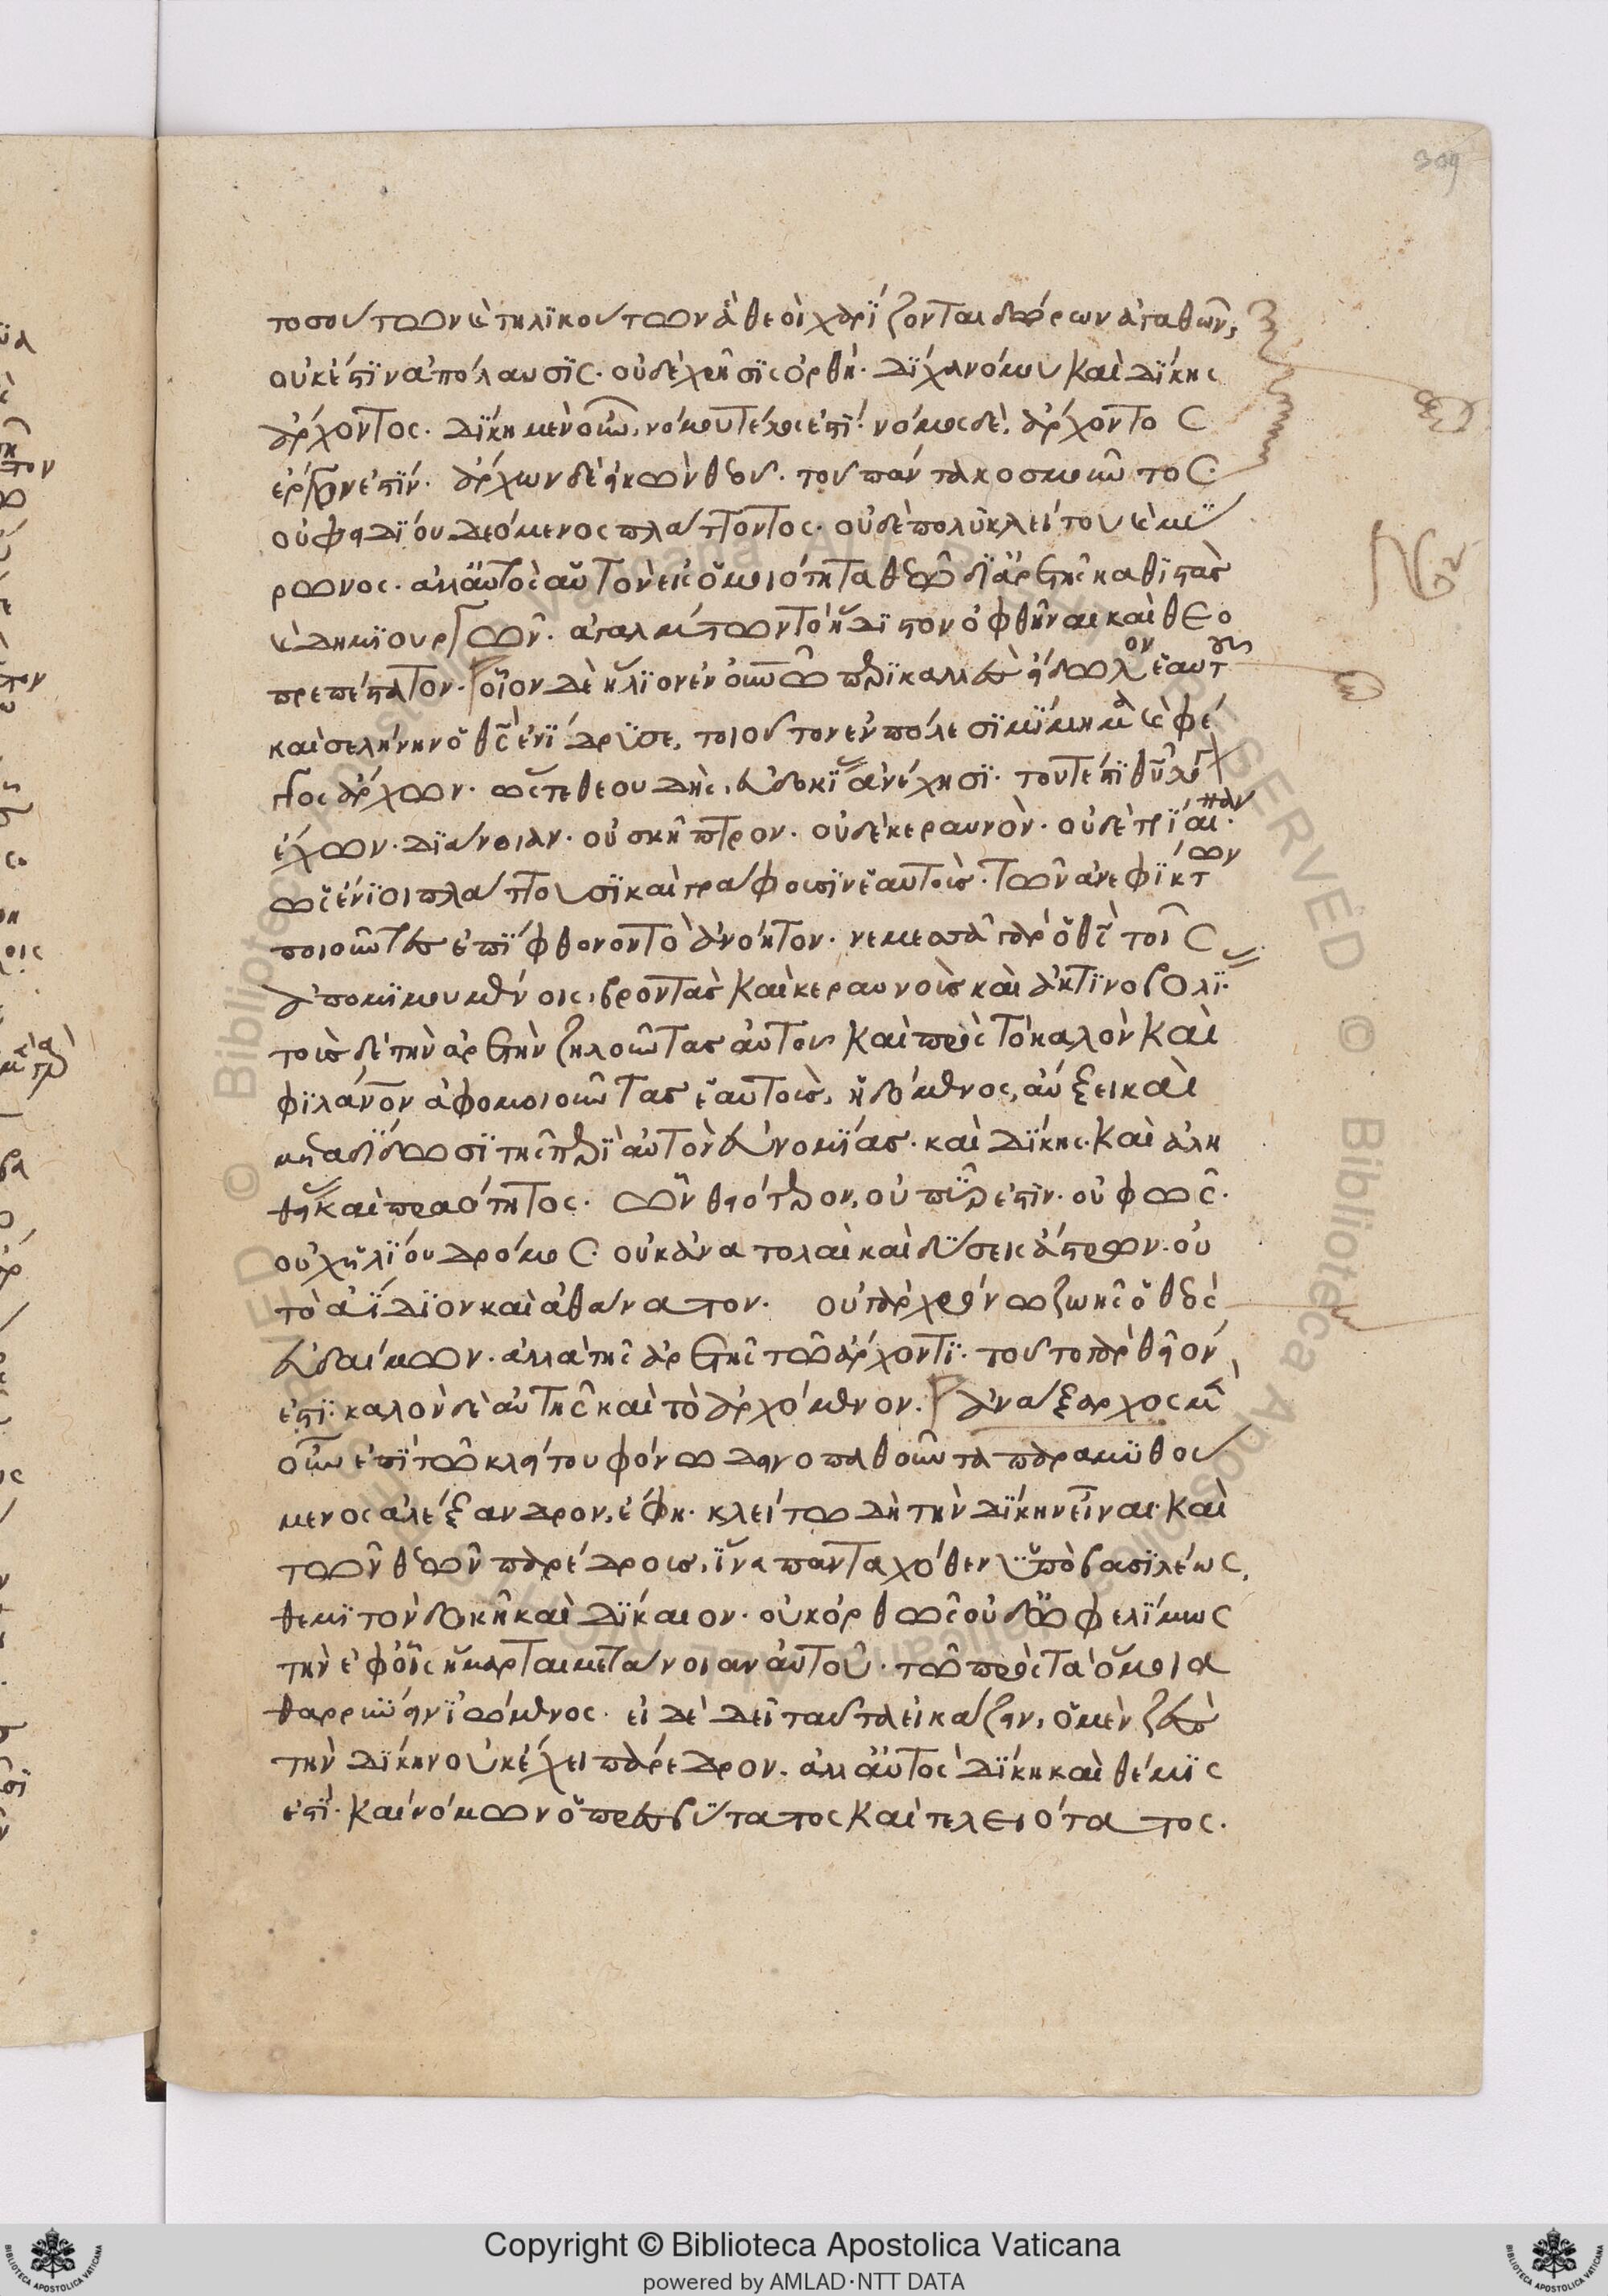 τοσούτων καὶ τηλικούτων ἃ θεοὶ χαρίζονται δώρων ἀγαθῶν,
οὐκ ἔστιν ἀπόλαυσις· οὐδὲ χρῆσις ὀρθὴ· δίχα νόμου καὶ δίκης
ἄρχοντος· δίκη μὲν οὖν, νόμου τέλος ἐστί· νόμος δὲ, ἄρχοντος
ἔργον ἐστίν· ἄρχων δὲ εἰκὼν θεοῦ· τοῦ πάντα κοσμοῦντος·
οὐ φειδίου δεόμενος πλάττοντος· οὐδὲ πολυκλείτου καὶ μύ
ρωνος· ἀλλ' αὐτὸς αὑτὸν εἰς ὁμοιότητα θεῷ δι' ἀρετῆς καθιστὰς
καὶ δημιουργῶν· ἀγαλμάτων τὸ ἥδιστον ὀφθῆναι καὶ θεο
πρεπέστατον· οἷον δὲ ἥλιον ἐν οὐνῶ περικαλλὲς εἴδωλον ἑαυτοῦ
καὶ σελήνην ὁ θεὸς ἐνίδρυσε, τοιοῦτον ἐν πόλεσι μίμημα καὶ φέγ
γος ἄρχων· ὥστε θεουδὴς, εὐδικίας ἀνέχησι· τουτέστι θεοῦ λόγον
ἔχων· διάνοιαν· οὐ σκῆπτρον· οὐδὲ κεραυνὸν· οὐδὲ τρίαιναν·
ὡς ἔνιοι πλάττουσι καὶ γράφουσιν ἑαυτοὺς· τῶν ἀνεφίκτων
ποιοῦντες ἐπίφθονον τὸ ἀνόητον· νεμεσᾶ γὰρ ὁ θεὸς τοῖς
ἀπομιμουμένοις, βροντὰς καὶ κεραυνοὺς καὶ ἀκτινοβολίας·
τοὺς δὲ τὴν ἀρετὴν ζηλοῦντας αὐτοῦ καὶ πρὸς τὸ καλὸν καὶ
φιλάνον ἀφομοιοῦντας ἑαυτοὺς, ἡδόμενος, αὔξει καὶ
μεταδίδωσι τῆς περὶ αὐτὸν εὐνομίας· καὶ δίκης· καὶ ἀλη
θείας καὶ πραότητος· ὧν θειότερον, οὐ πῦρ ἐστιν· οὐ φῶς·
οὐχ ἡλίου δρόμος· οὐκ ἀνατολαὶ καὶ δύσεις ἄστρων· οὐ
τὸ ἀΐδιον καὶ ἀθάνατον· οὐ γὰρ χρόνω ζωῆς ὁ θεὸς
εὐδαίμων· ἀλλὰ τῆς ἀρετῆς τῶ ἄρχοντι· τοῦτο γὰρ θεῖόν
ἐστι· καλὸν δὲ αὐτῆς καὶ τὸ ἀρχόμενον. ἀνάξαρχος μὲν
οὖν ἐπὶ τῶ κλείτου φόνω δεινοπαθοῦντα παραμυθού
μενος ἀλέξανδρον, ἔφη· κλείτω δὴ τὴν δίκην εἶναι· καὶ
τῶν θεῶν παρέδροις, ἵνα πανταχόθεν ὑπὸ βασιλέως,
θεμιτὸν δοκῆ καὶ δίκαιον· οὐκ ὀρθῶς οὐδ' ὠφελίμως
τὴν ἐφ' οἷς ἥμαρται μετάνοιαν αὐτοῦ· τῶ πρὸς τὰ ὅμοια
θαρρύνειν ἰώμενος· εἰ δὲ δεῖ ταῦτα εἰκάζειν, ὁ μὲν ζεὺς
τὴν δίκην οὐκ ἔχει πάρεδρον· ἀλλ' αὐτὸς δίκη καὶ θέμις
ἐστί· καὶ νόμων ὁ πρεσβύτατος καὶ τελειότατος.
309
Copyright © Biblioteca Apostolica Vaticana
powered by AMLAD·NTT DATA